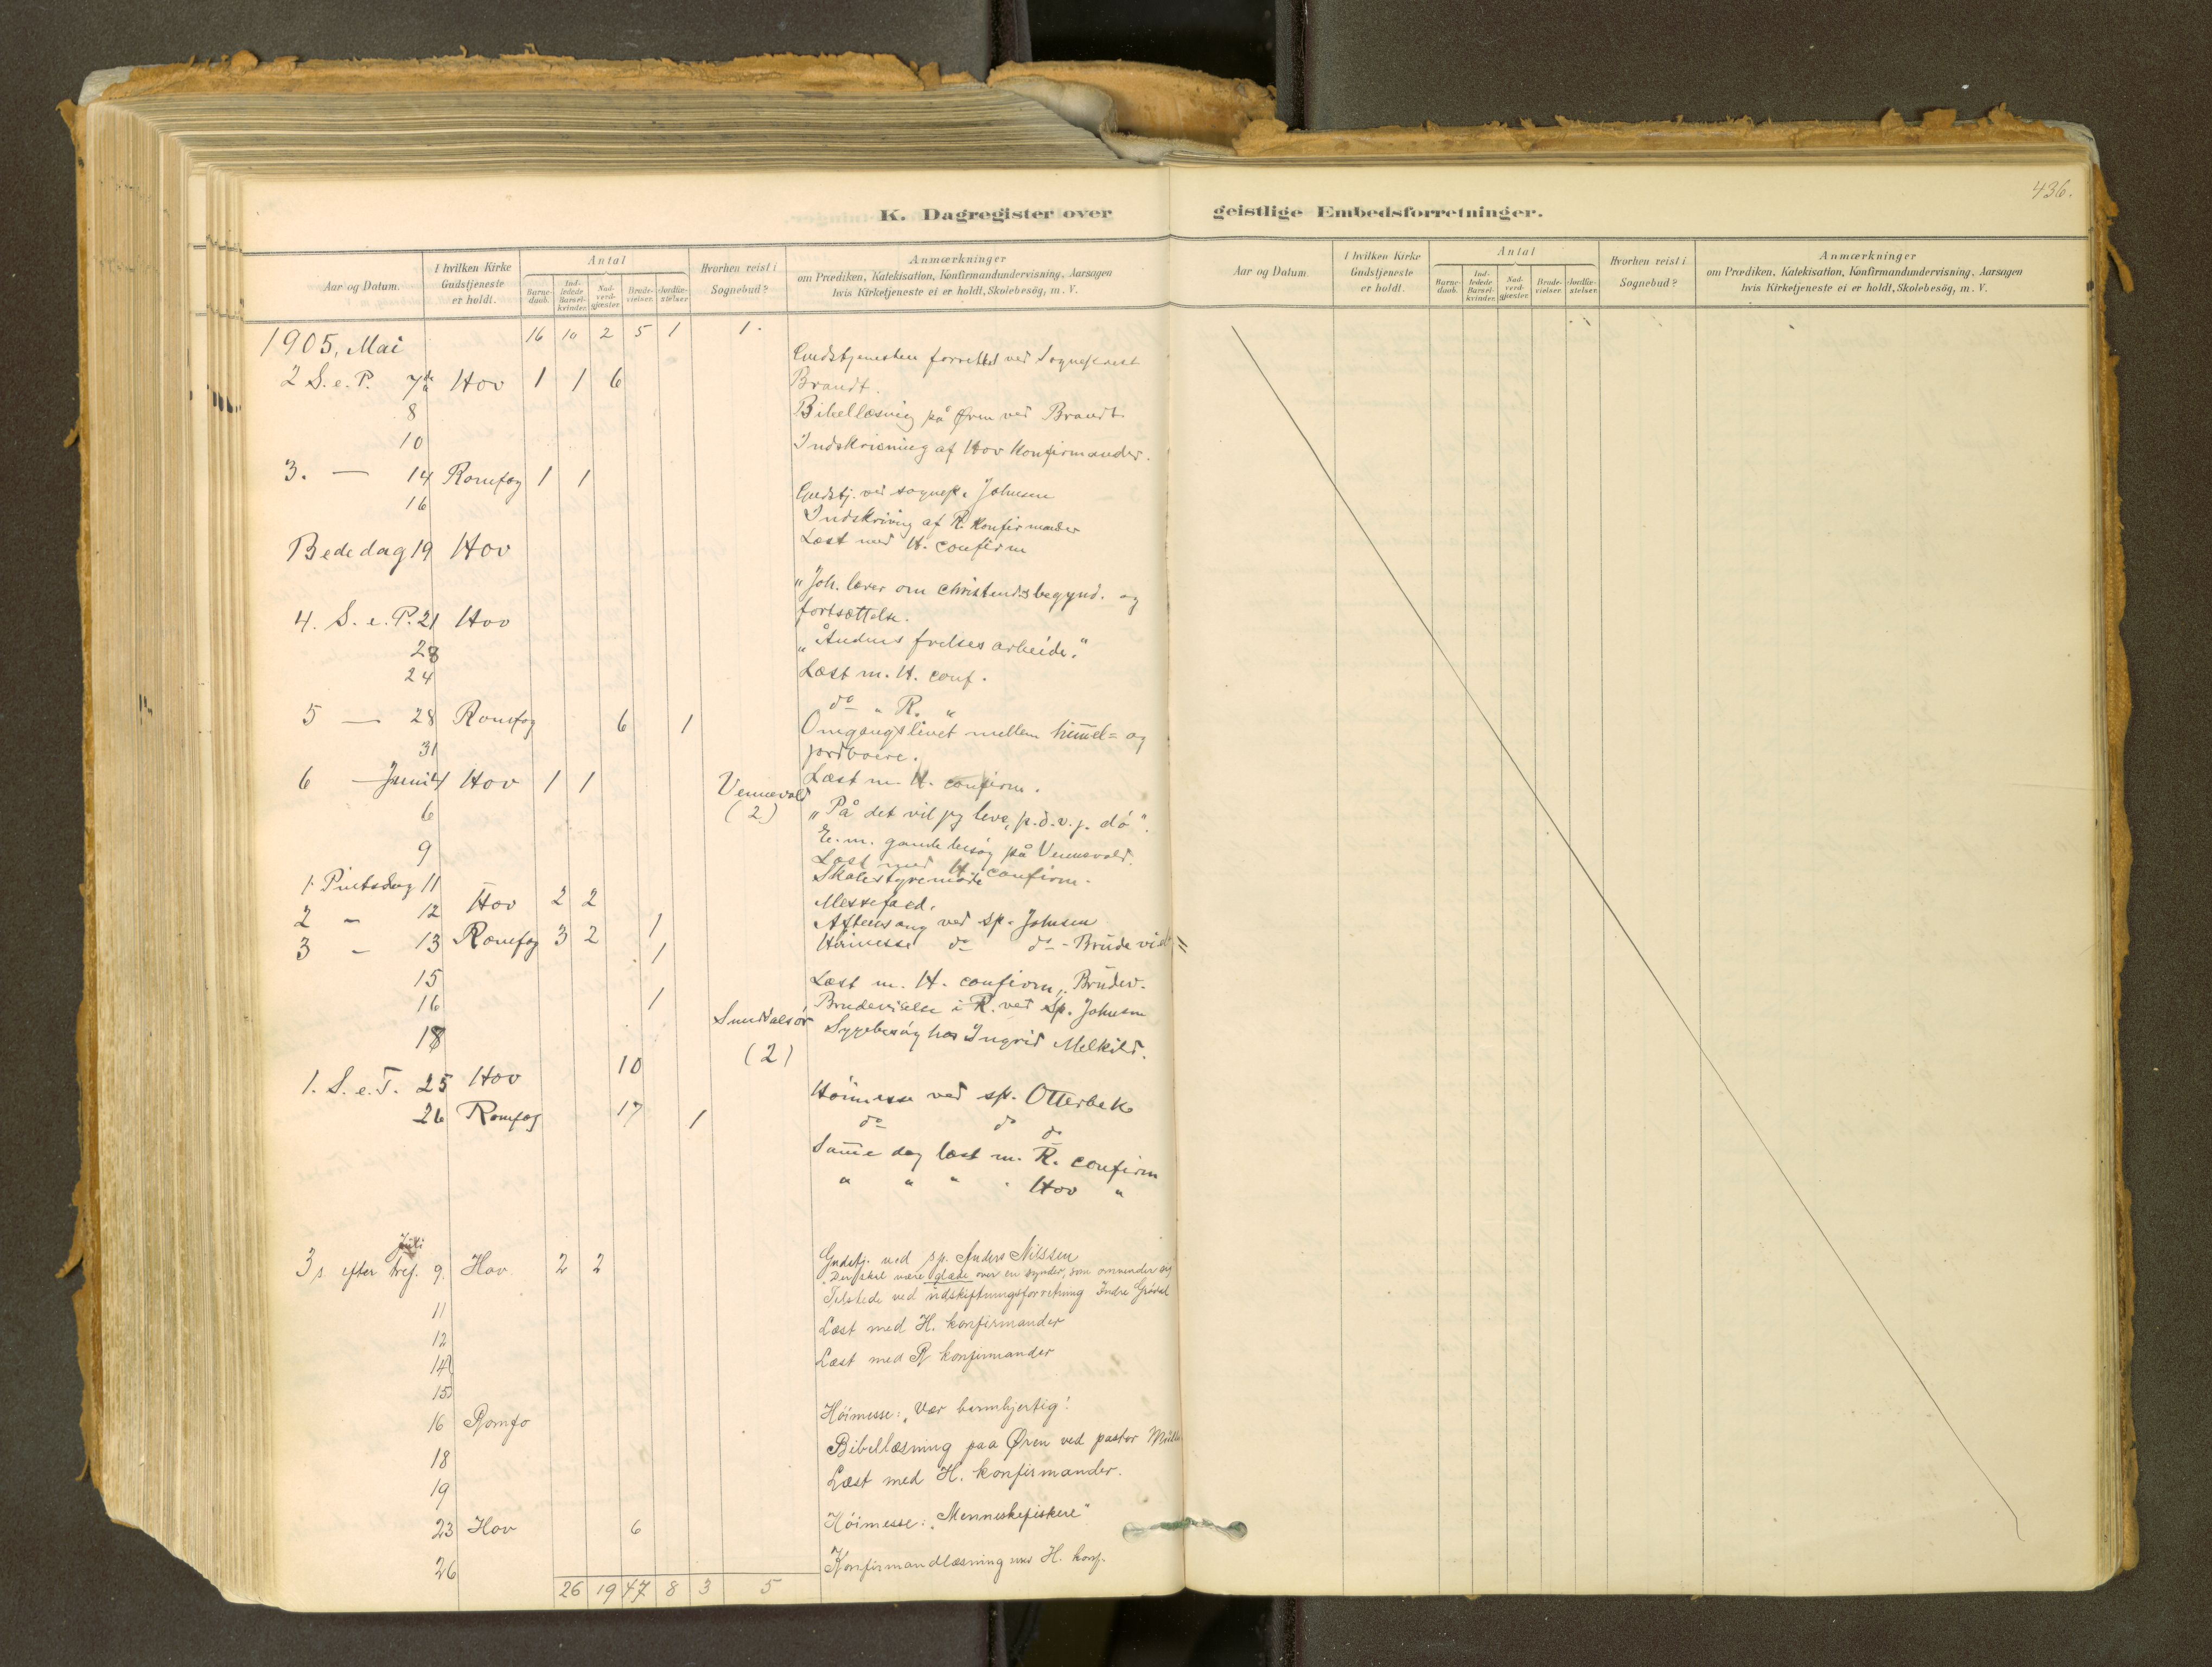 436.
K. Dagregister over geistlige Embedsforretninger.
Aar og Datum.
I hvilken Kirke Gudstjeneste er holdt.
Antal
Barne-daab.
Ind-ledede Barsel-kvinder.
Nad-verd-gjester.
Brude-vielser.
Jordfæ-stelser.
Hvorhen reist i Sognebud?
Anmærkninger
om Prædiken, Katekisation, Konfirmandundervisning, Aarsagen
hvis Kirketjeneste ei er holdt, Skolebesög, m. V.
1905, Mai 16 10 2 5 1 1.
2 S. e. P. 7de Hov 1 1 6 Gudstjenesten forrettet ved Sogneprest
Brandt.
8 Bibellæsning på Øren ved Brandt
10 Indskrivning af Hov Konfirmander.
3. — 14 Romfog 1 1 Gudstj. ved sognep. Johnsen
16 Indskriving af R. Konfirmander
Læst med H. confirm
Bededag 19 Hov "Joh. lærer om christend.s begynd. og
fortsættelse.
4. S. e. P. 21 Hov "Åndens frelses arbeide."
23 Læst m. H. conf.
24 do " R. "
5 — 28 Romfog 6 1 Omgangslivet mellem himel= og
jordboere.
31 Læst m. H. confirm.
6 — Juni 4 Hov 1 1 Vennevold (2) "På det vil jeg leve, p.d.v.j. dö".
E.m. gamle besög på Vennevold.
6 Læst med H. confirm.
9 Skolestyremöde
1 Pintsdag 11 Messefald.
2 - 12 Hov 2 2 1 Aftensang ved sp. Johnsen
3 - 13 Romfog 3 2 1 Höimesse do do - Brudeviel=
15 Læst m. H. confirm, Brudev.
16 1 Brudevielse i R. ved Sp. Johnsen
18 Sunddalsör (2) Sygebesög hos Ingrid Melkild.
1. S. e. T. 25 Hov 10 Höimesse ved sp. Otterbek
26 Romfog 17 1 do do do
Same dag læst m. R. confirm
" " " " Hov "
Juli
3 s. efter tref. 9. Hov 2 2 Gudstj. ved sp. Anders Nilssen
"Der skal være glæde over en synder, som omvender sig
Tilstede ved udskiftningsforretning Indre Grödal
11 Læst med H. konfirmander
12
14 Læst med R konfirmander
15
16 Romfo Höimesse: "Vær barmhjertig!
18 Bibellæsning paa Øren ved pastor
19 Læst med H. konfirmander.
23 Hov 6 Höimesse: "Menneskefiskere"
26 Konfirmandlæsning med H. konf.
26 19 47 8 3 5
Aar og Datum.
I hvilken Kirke Gudstjeneste er holdt.
Antal
Barne-daab.
Ind-ledede Barsel-kvinder.
Nad-verd-gjester.
Brude-vielser.
Jordfæ-stelser.
Hvorhen reist i Sognebud?
Anmærkninger
om Prædiken, Katekisation, Konfirmandundervisning, Aarsagen
hvis Kirketjeneste ei er holdt, Skolebesög, m. V.